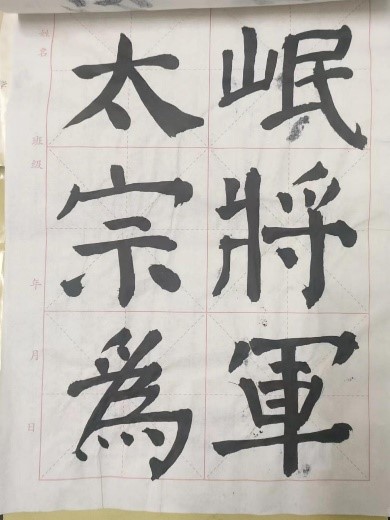 岷將軍
太宗為
姓名
班級
年 月 日